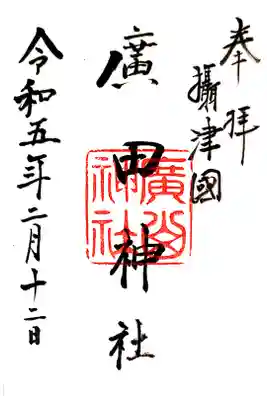 奉拝
攝津國
廣田神社
廣田神社
令和五年二月十二日